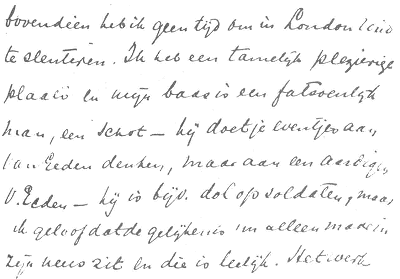 bovendien heb ik geen tijd om in London rond
te slenteren. Ik heb een tamelijk plezierige
plaats en mijn baas is een fatsoenlijk
man, een schot – hij doet je eventjes aan
van Eeden denken, maar aan een aardigen
v. Eeden – hij is bijv. dol op soldaten, maar
ik geloof dat de gelijkenis im alleen maar in
zijn neus zit en die is leelijk. Het werk